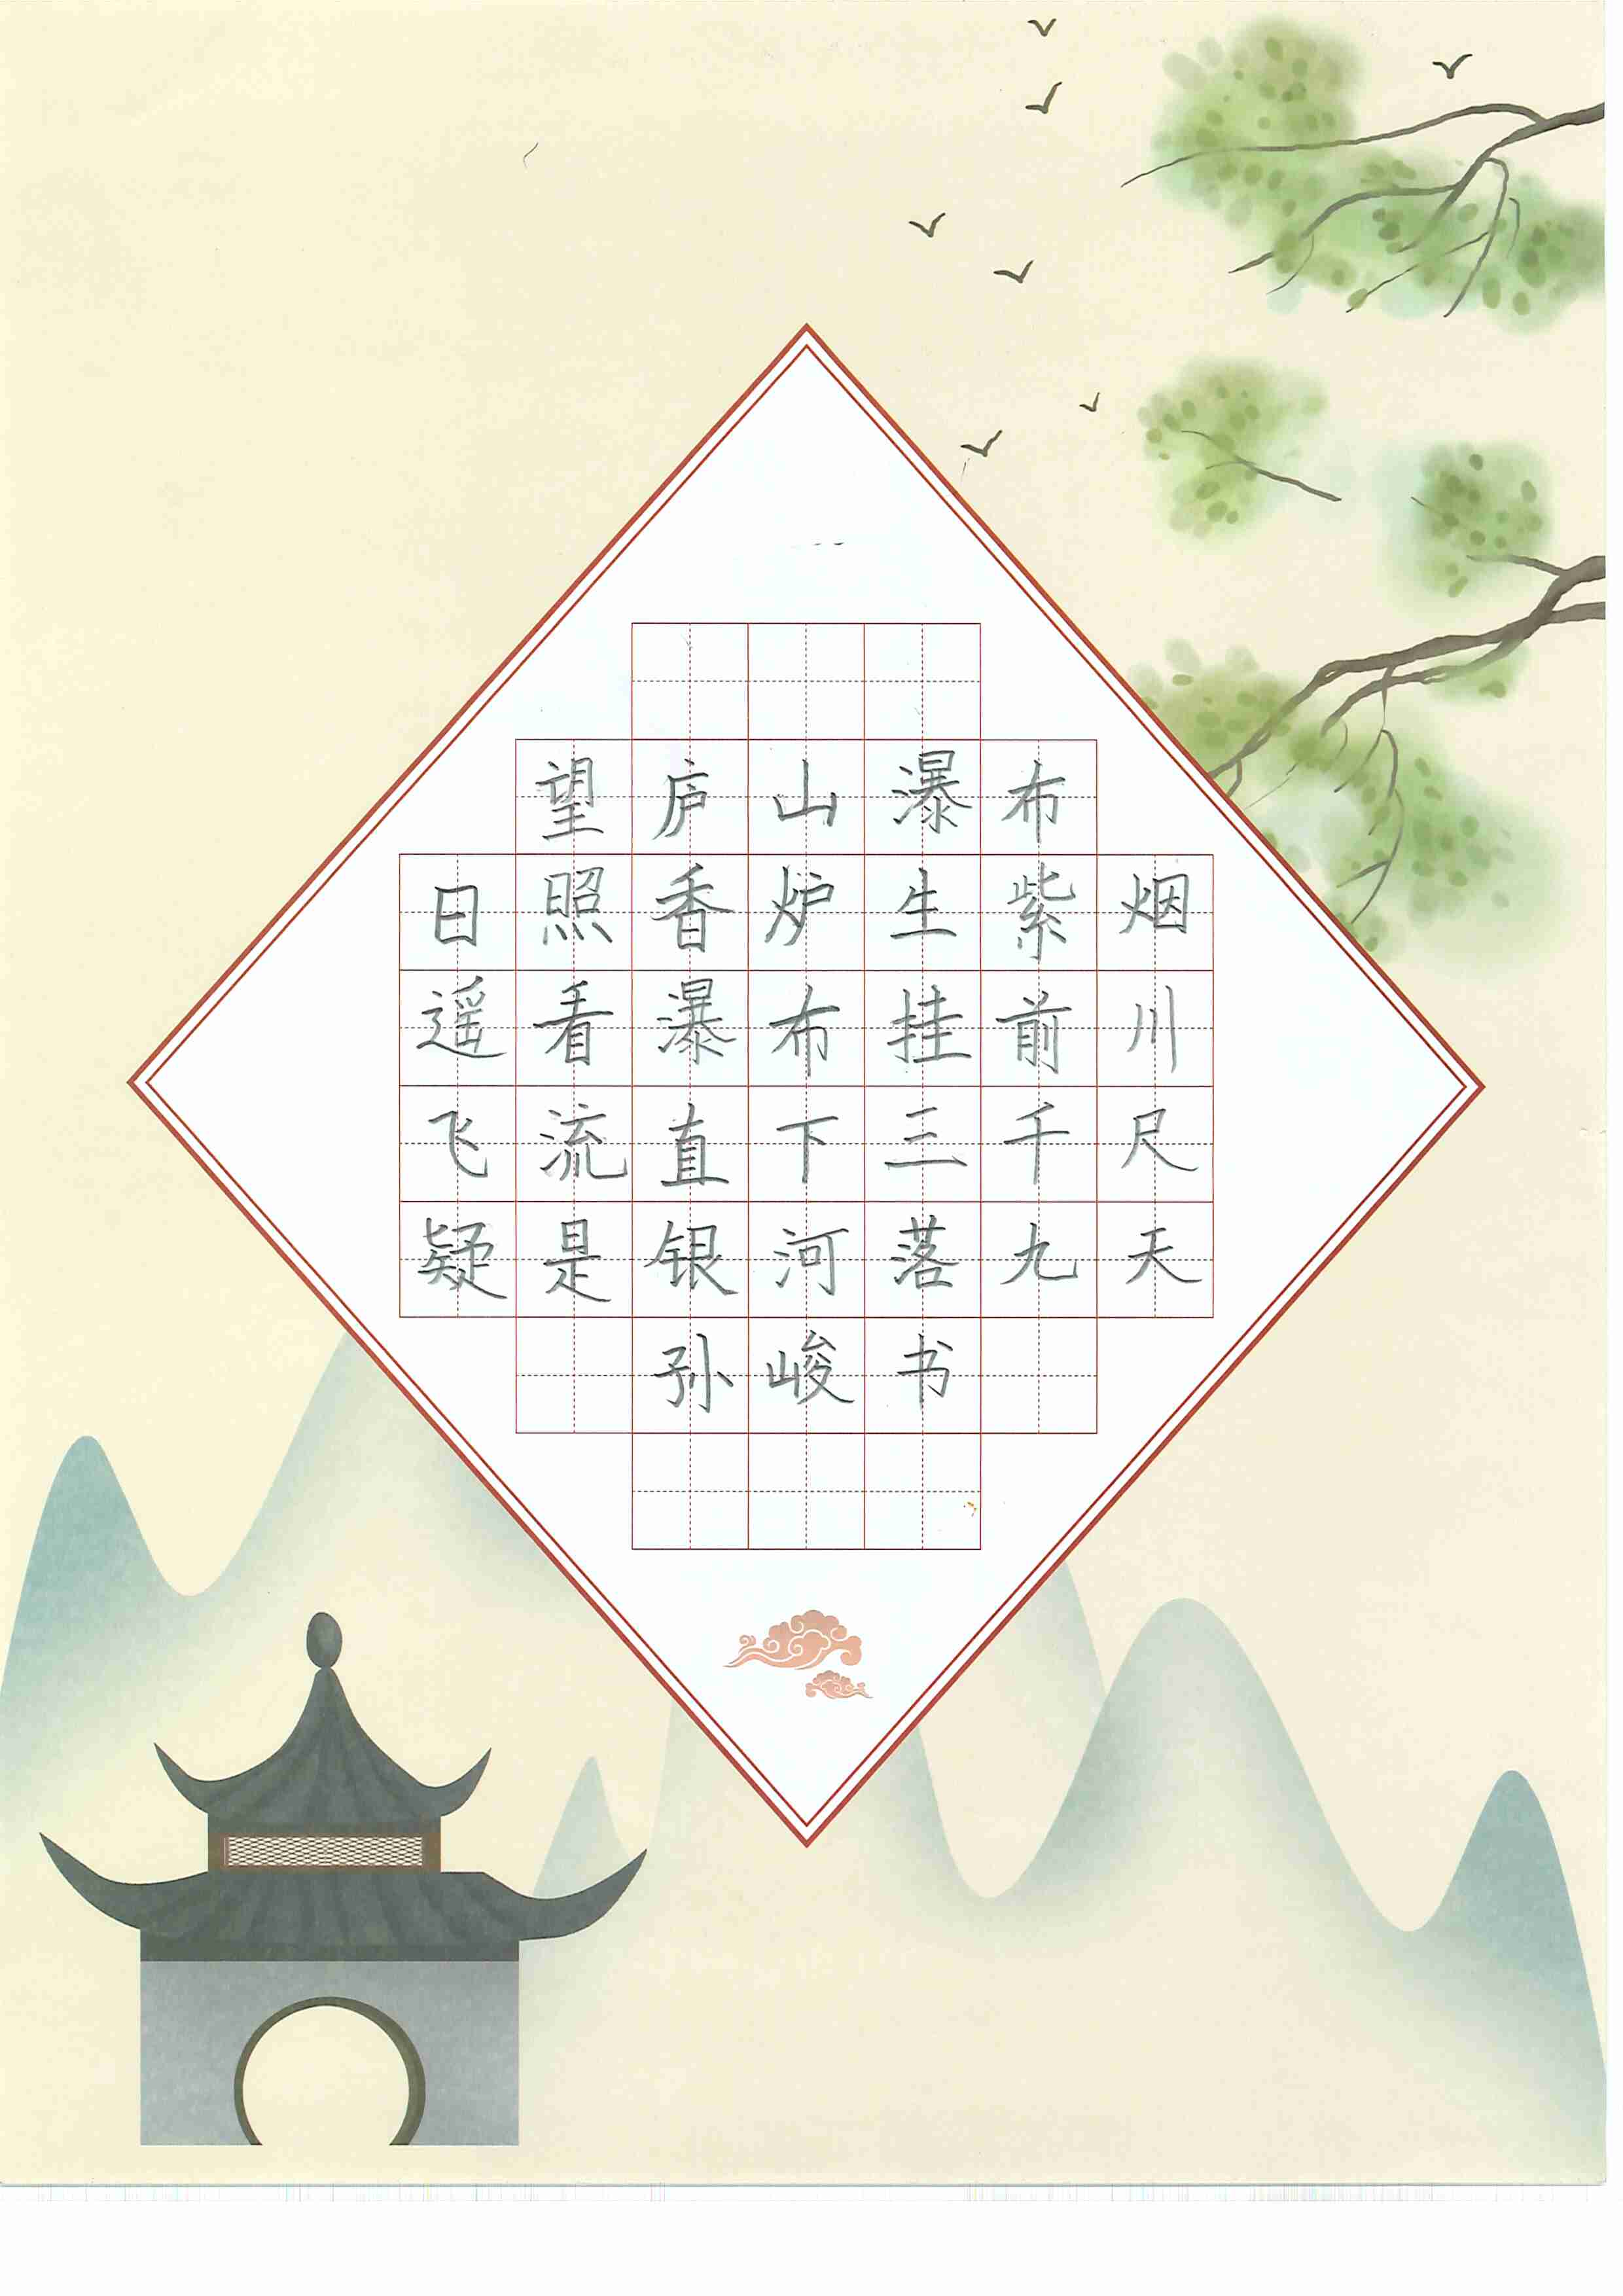 望庐山瀑布
日照香炉生紫烟
遥看瀑布挂前川
飞流直下三千尺
疑是银河落九天
孙峻书